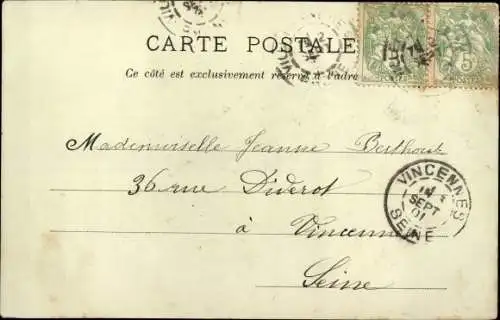 CARTE POSTALE
Ce côté est exclusivement réservé à l'adre
5
POSTES
Mademoiselle Jeanne Berthout
36 rue Diderot
à Vincennes
Seine
VINCENNES
SEPT
01
SEINE